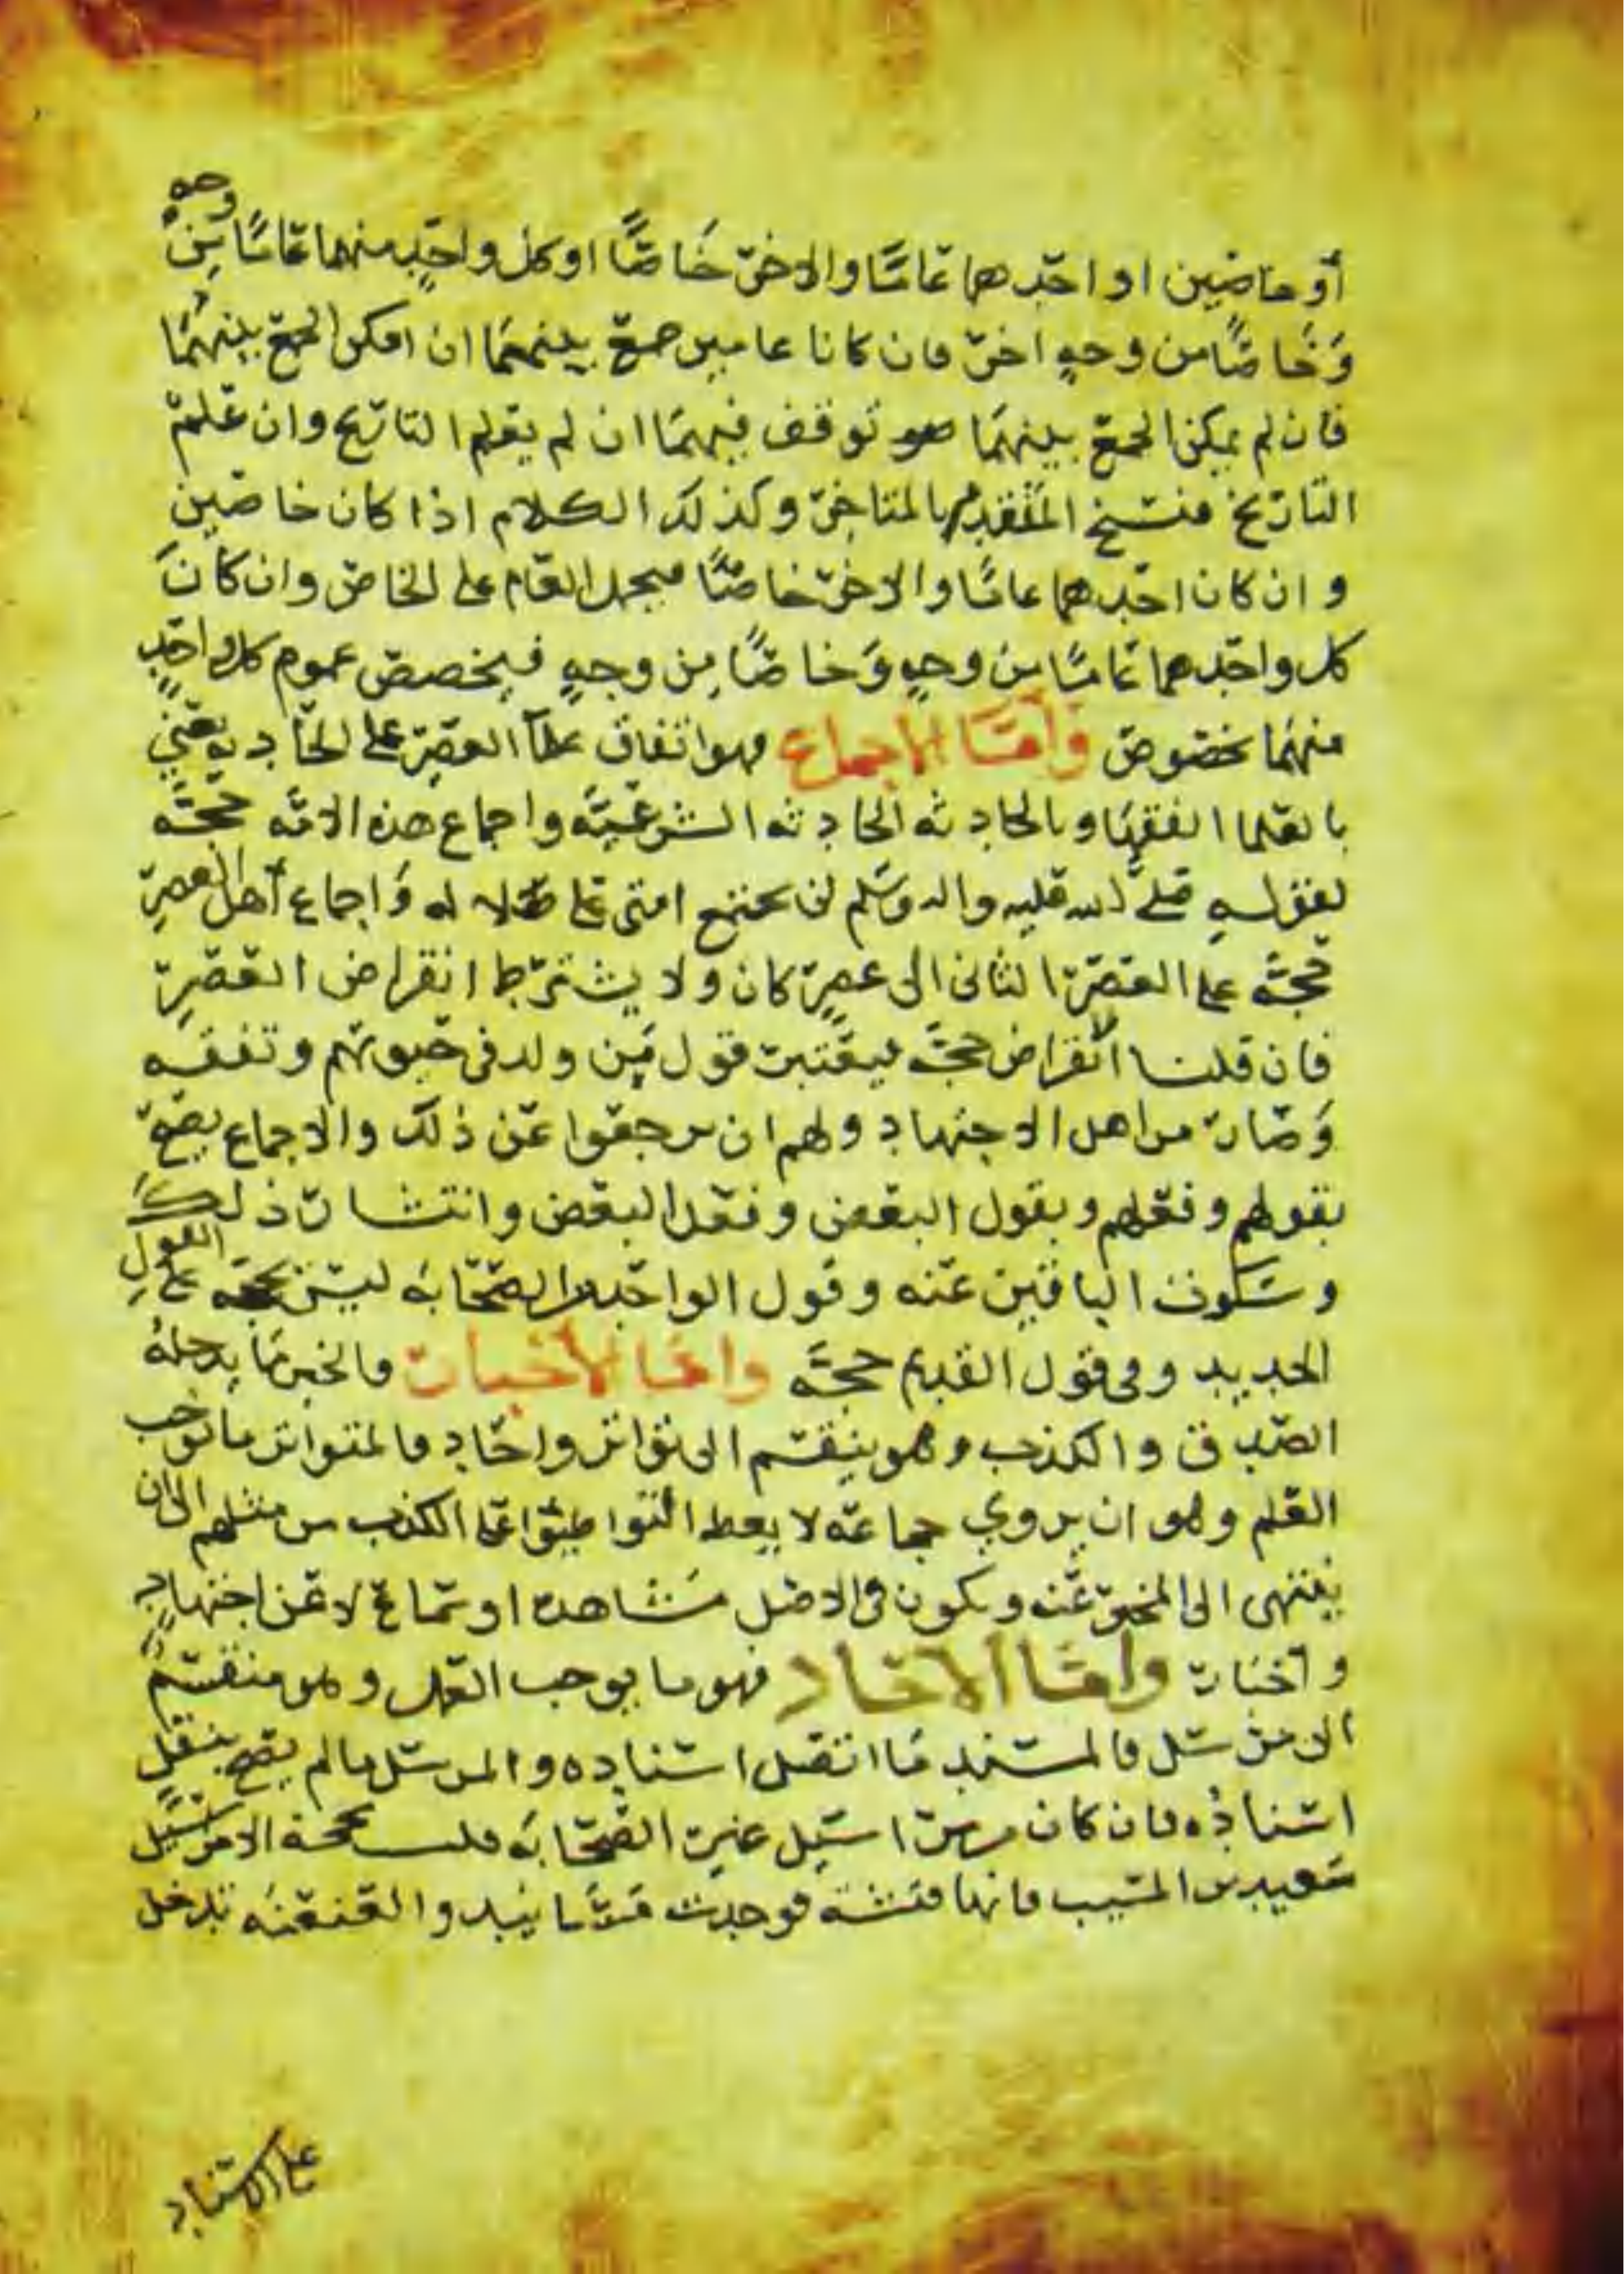 أو خاصين او احدهما عامًا والاخر خاصًّا او كل واحدٍ منهما عامًا مِن وجه
وَخاصًّا من وجهٍ اخر فان كانا عامين جمع بينهما ان امكن الجمع بينهُما
فان لم يمكن الجمع بينهما توقف فيهما ان لم يعلم التاريخ وان علم
التاريخ فنسخ المتقدم بالمتاخر وكذلك الكلام اذا كان خاصين
و ان كان احدهما عامًا والاخر خاصًّا فيحمل العام على الخاص وان كانَ
كل واحدهما عامًا من وجهٍ وَخاصًا مِن وجهٍ فيخصص عموم كل واحدٍ
منهما بخصوص وأمّا الاجماع فهو اتفاق علمآ العصر على الحادثه يعني
بالعلما الفقها وبالحادثه الحادثه الشرعيّه واجماع هذه الامّه حجّه
لقولهِ صلى الله عليه واله وسلم لن تجتمع امتي على ضلاله وَاجماع أهل العصرِ
حجّه على العصر الثاني الى عصرٍ كان ولا يشترط انقراض العصرِ
فان قلنا انقراض حجه فيعتبر قول مَن ولد في حيوتهم وتفقه
وَصار من اهل الاجتهاد ولهم ان يرجعوا عن ذلك والاجماع يصحّ
بقولهم وفعلهم وبقول البعض وفعل البعض وانتشار ذلك
وسكوت الباقين عنه وقول الواحد من الصحابه ليس بحجه على القولِ
الجديد وفي قول القديم حجّه وامّا الأخبار فالخبر ما يدخله
الصدق والكذب وهو ينقسم الى تواتر واحاد فالمتواتر ما توجب
العلم وهو ان يروي جماعه لا التواطؤا على الكذب من مثلهم الى ان
ينتهى الى المخبر عنه ويكون في الاصل مشاهده او سماع لا عن اجتهادٍ
واخبار وامّا الاحاد فهو ما يوجب العمل وهو منقسمٌ
الى مرسل فالمسند مَا اتصل اسناده والمرسل ما لم يصح بنقلٍ
اسنادُه فان كان من مراسيل غير الصحابه فليس بحجة الا مراسيل
سعيد بن المسيب فانها فتشة فوجدت مسانيد والعنعنه تدخل
على الاسناد